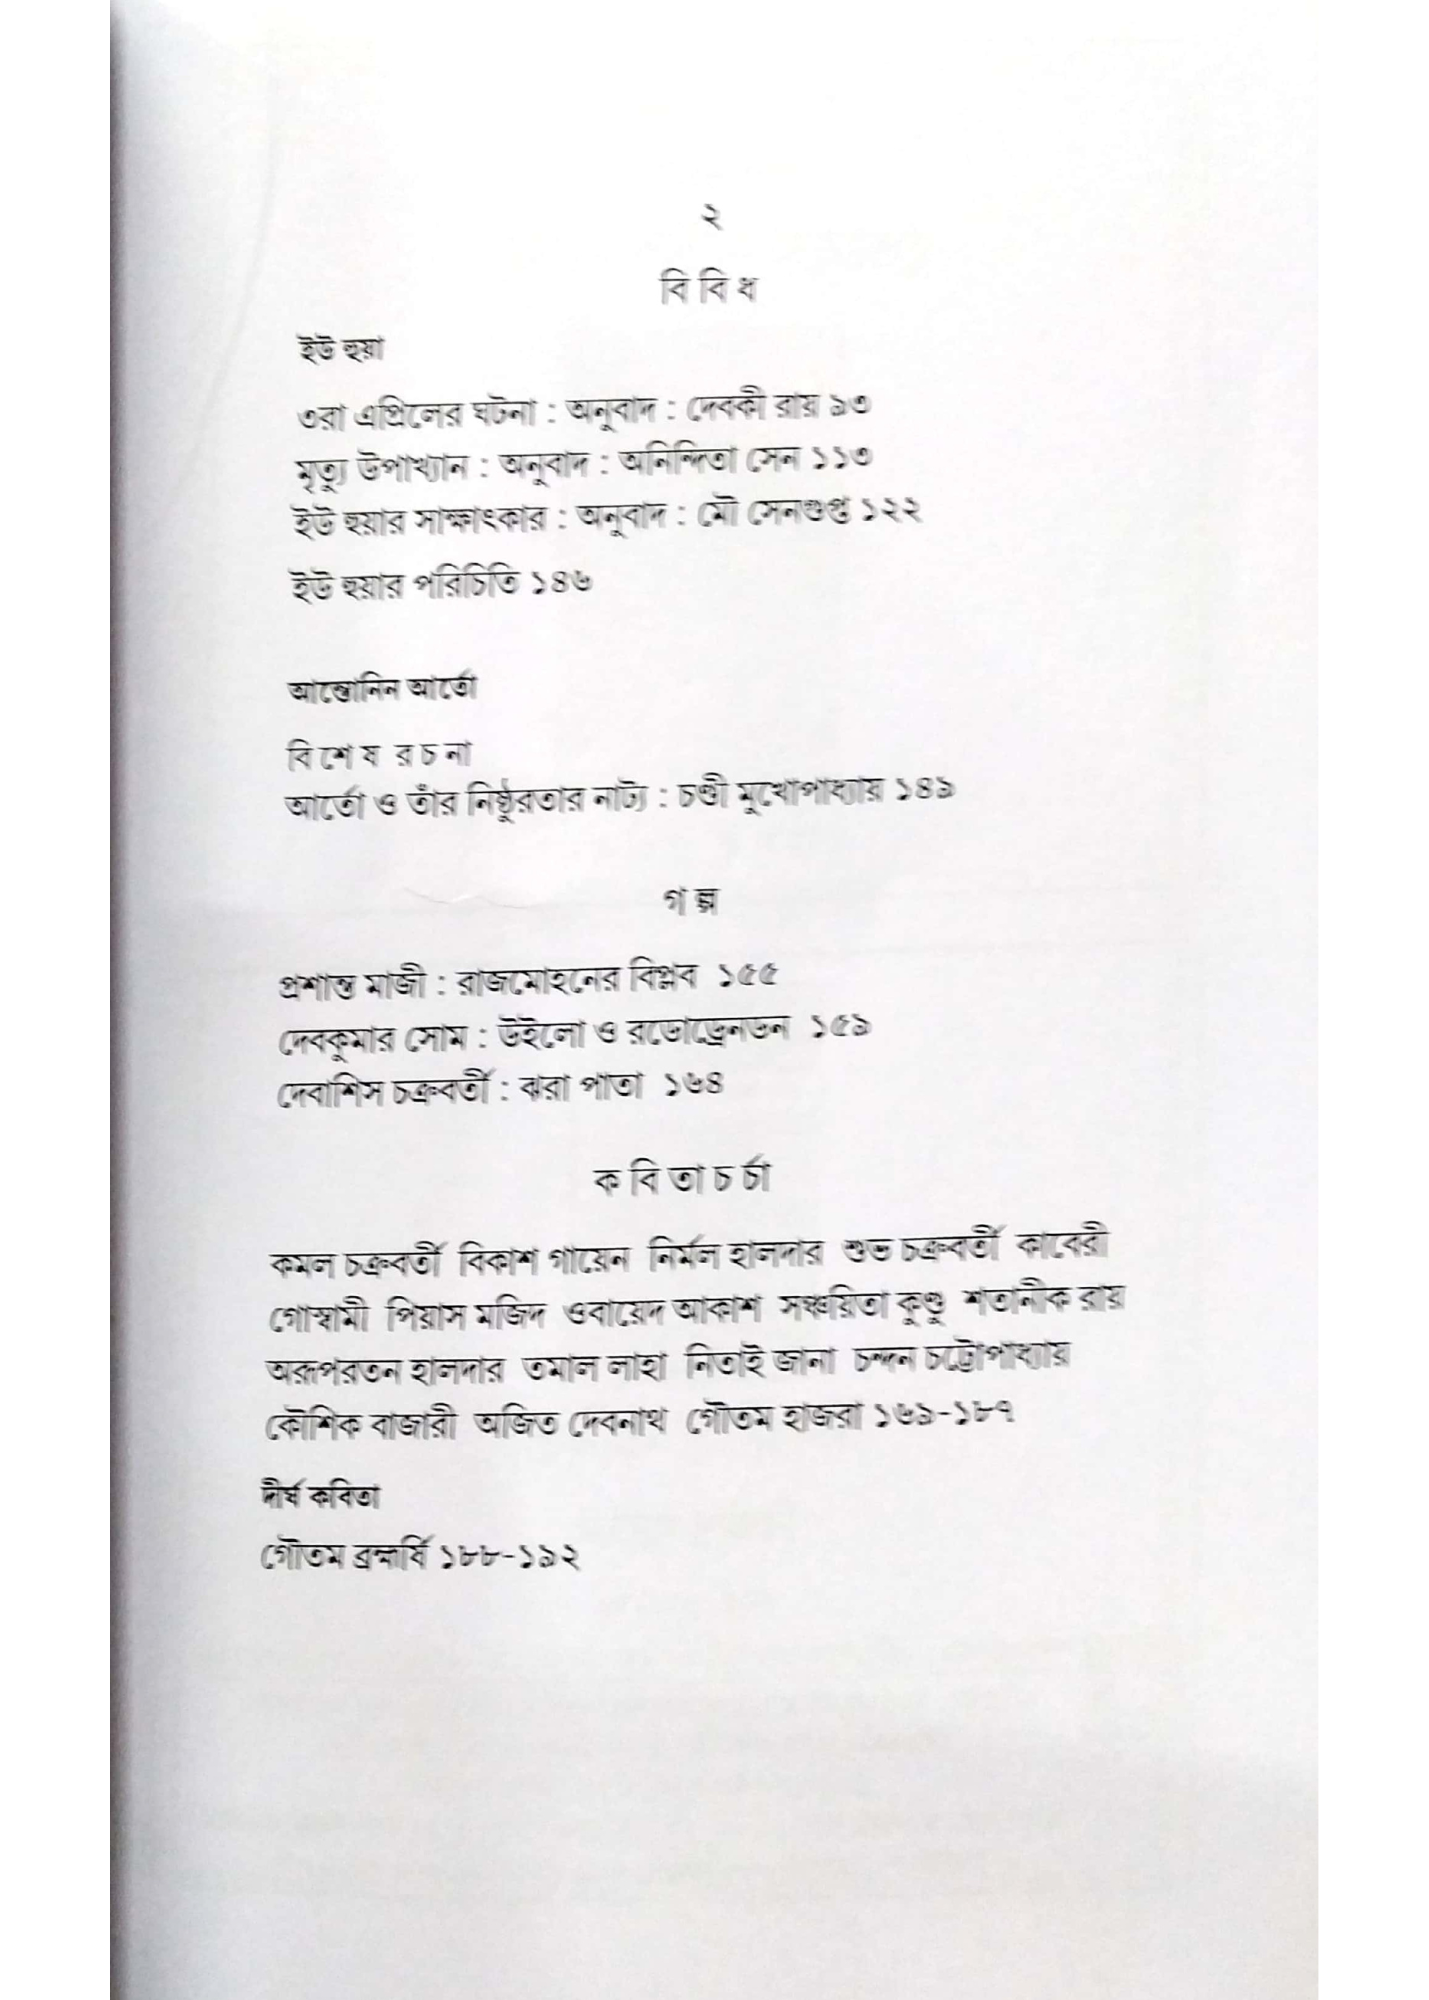 ২
বি বি ধ
ইউ হুয়া
৩রা এপ্রিলের ঘটনা : অনুবাদ : দেবকী রায় ৯৩
মৃত্যু উপাখ্যান : অনুবাদ : অনিন্দিতা সেন ১১৩
ইউ হুয়ার সাক্ষাৎকার : অনুবাদ : মৌ সেনগুপ্ত ১২২
ইউ হুয়ার পরিচিতি ১৪৬
আন্তোনিন আর্তো
বি শে ষ র চ না
আর্তো ও তাঁর নিষ্ঠুরতার নাট্য : চণ্ডী মুখোপাধ্যায় ১৪৯
গ ল্প
প্রশান্ত মাজী : রাজমোহনের বিপ্লব ১৫৫
দেবকুমার সোম : উইলো ও রডোড্রেনডন ১৫৯
দেবাশিস চক্রবর্তী : ঝরা পাতা ১৬৪
ক বি তা চ র্চা
কমল চক্রবর্তী বিকাশ গায়েন নির্মল হালদার শুভ চক্রবর্তী কাবেরী
গোস্বামী পিয়াস মজিদ ওবায়েদ আকাশ সঞ্চয়িতা কুণ্ডু শতানীক রায়
অরূপরতন হালদার তমাল লাহা নিতাই জানা চন্দন চট্টোপাধ্যায়
কৌশিক বাজারী অজিত দেবনাথ গৌতম হাজরা ১৬৯-১৮৭
দীর্ঘ কবিতা
গৌতম ব্রহ্মর্ষি ১৮৮-১৯২